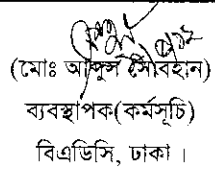 (মোঃ আব্দুস সোবহান)
ব্যবস্থাপক(কর্মসূচি)
বিএডিসি, ঢাকা ।